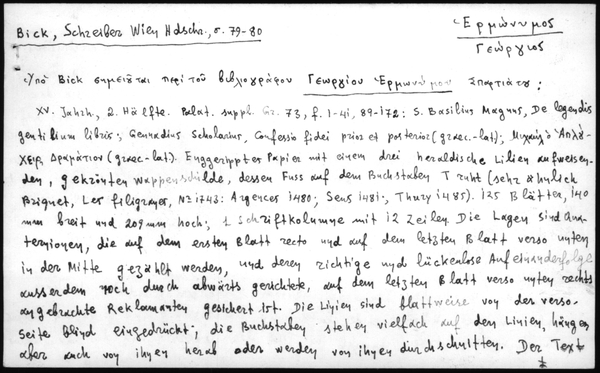 Bick, Schreiber Wien Hdschr., σ. 79-80
Ἑρμώνυμος
Γεώργιος
Ὑπὸ Bick σημειοῦται περὶ τοῦ βιβλιογράφου Γεωργίου Ἑρμωνύμου Σπαρτιάτου:
XV. Jahrh., 2. Hälfte. Palat. suppl. Gr. 73, f. 1-41, 89-172: S. Basilius Magnus, De legendis
gentilium libris; Gennadius Scholarius, Confessio fidei prior et posterior (graec.-lat); Μιχαὴλ Ἀπλά-
χειρ Δραμάτιον (graec.-lat). Enggerippter Papier mit einem drei heraldische Lilien aufweisen-
den, gekrönten Wappenschilde, dessen Fuss auf dem Buchstaben T ruht (sehr ähnlich
Briquet, Les filigranes, No 1743: Argences 1480; Sens 1481-, Thury 1485). 125 Blätter, 140
mm breit und 209 mm hoch; 1 Schriftkolumne mit 12 Zeilen. Die Lagen sind Qua-
ternionen, die auf dem ersten Blatt recto und auf dem letzten Blatt verso unten
in der Mitte gezählt werden, und deren richtige und lückenlose Aufeinanderfolge
ausserdem noch durch abwärts gerichtete, auf dem letzten Blatt verso unten rechts
angebrachte Reklamanten gesichert ist. Die Linien sind blattweise von der verso-
Seite blind eingedrückt; die Buchstaben stehen vielfach auf den Linien, hängen
aber auch von ihnen herab oder werden von ihnen durchschnitten. Der Text